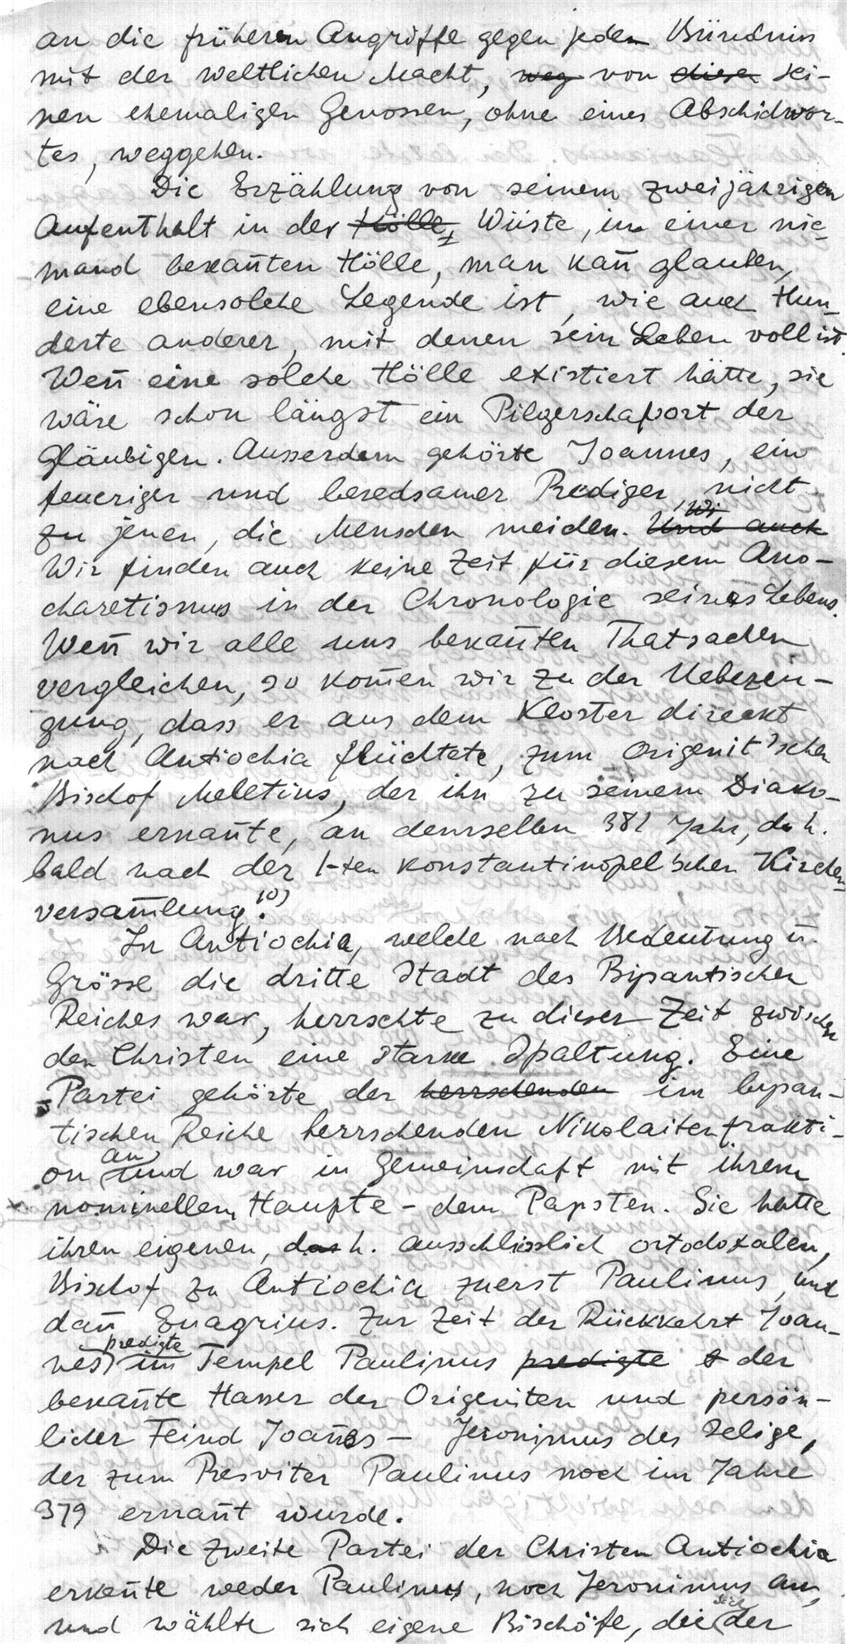 an die früheren Angriffe gegen jeden Bündniss
mit der weltlichen Macht, weg von dieser sei-
nen ehemaligen Genossen, ohne eines Abschidwor-
tes, weggehen.
Die Erzählung von seinem zweijährigen
Aufenthalt in der Hölle, Wüste, in einer nie-
mand bekan̄ten Hölle, man kan̄ glauben,
eine ebensolche Legende ist, wie auch Hun-
derte anderer, mit denen sein Leben voll ist.
Wen̄ eine solche Hölle existiert hätte, sie
wäre schon längst ein Pilgerschaport der
Gläubigen. Ausserdem gehörte Joannes, ein
feueriger und beredsamer Prediger, nicht
zu jenen, die Menschen meiden. Und auch Wi
Wir finden auch keine Zeit für diesem Ano-
charetismus in der Chronologie seines Lebens.
Wen̄ wir alle uns bekan̄ten Thatsachen
vergleichen, so kom̄en wir zu der Uebezeu-
gung, dass er aus dem Kloster direckt
nach Antiochia flüchtete, zum Origenit'schen
Bischof Meletius, der ihn zu seinem Diako-
nus ernan̄te, an demselben 381 Jahr, d. h.
bald nach der 1-ten konstantinopel'schen Kirchen-
versam̄lung.10)
In Antiochia, welche nach Bedeutung u.
Grösse die dritte Stadt des Bipantischen
Reiches war, herrschte zu dieser Zeit zwischen
den Christen eine starke Spaltung. Eine
Partei gehörte der herrschenden im bypan-
tischen Reiche herrschenden Nikolaitenfrakti-
on an und war in Gemeinschaft mit ihrem
nominellem Haupte - dem Papsten. Sie hatte
ihren eigenen, d. h. ausschliesslich ortodoxalen,
Bischof zu Antiochia zuerst Paulinus, und
dan̄ Euagrius. Zur Zeit der Rückkehrt Joan-
nes predigte im Tempel Paulinus predigte der
bekan̄te Hasser der Origeniten und persön-
licher Feind Joan̄es - Jeronimus der Selige,
der zum Presviter Paulinus noch im Jahre
379 ernan̄t wurde.
Die zweite Partei der Christen Antiochia
erkan̄te weder Paulinus, noch Jeronimus an,
und wählte sich eigene Bischöfe, die sich der